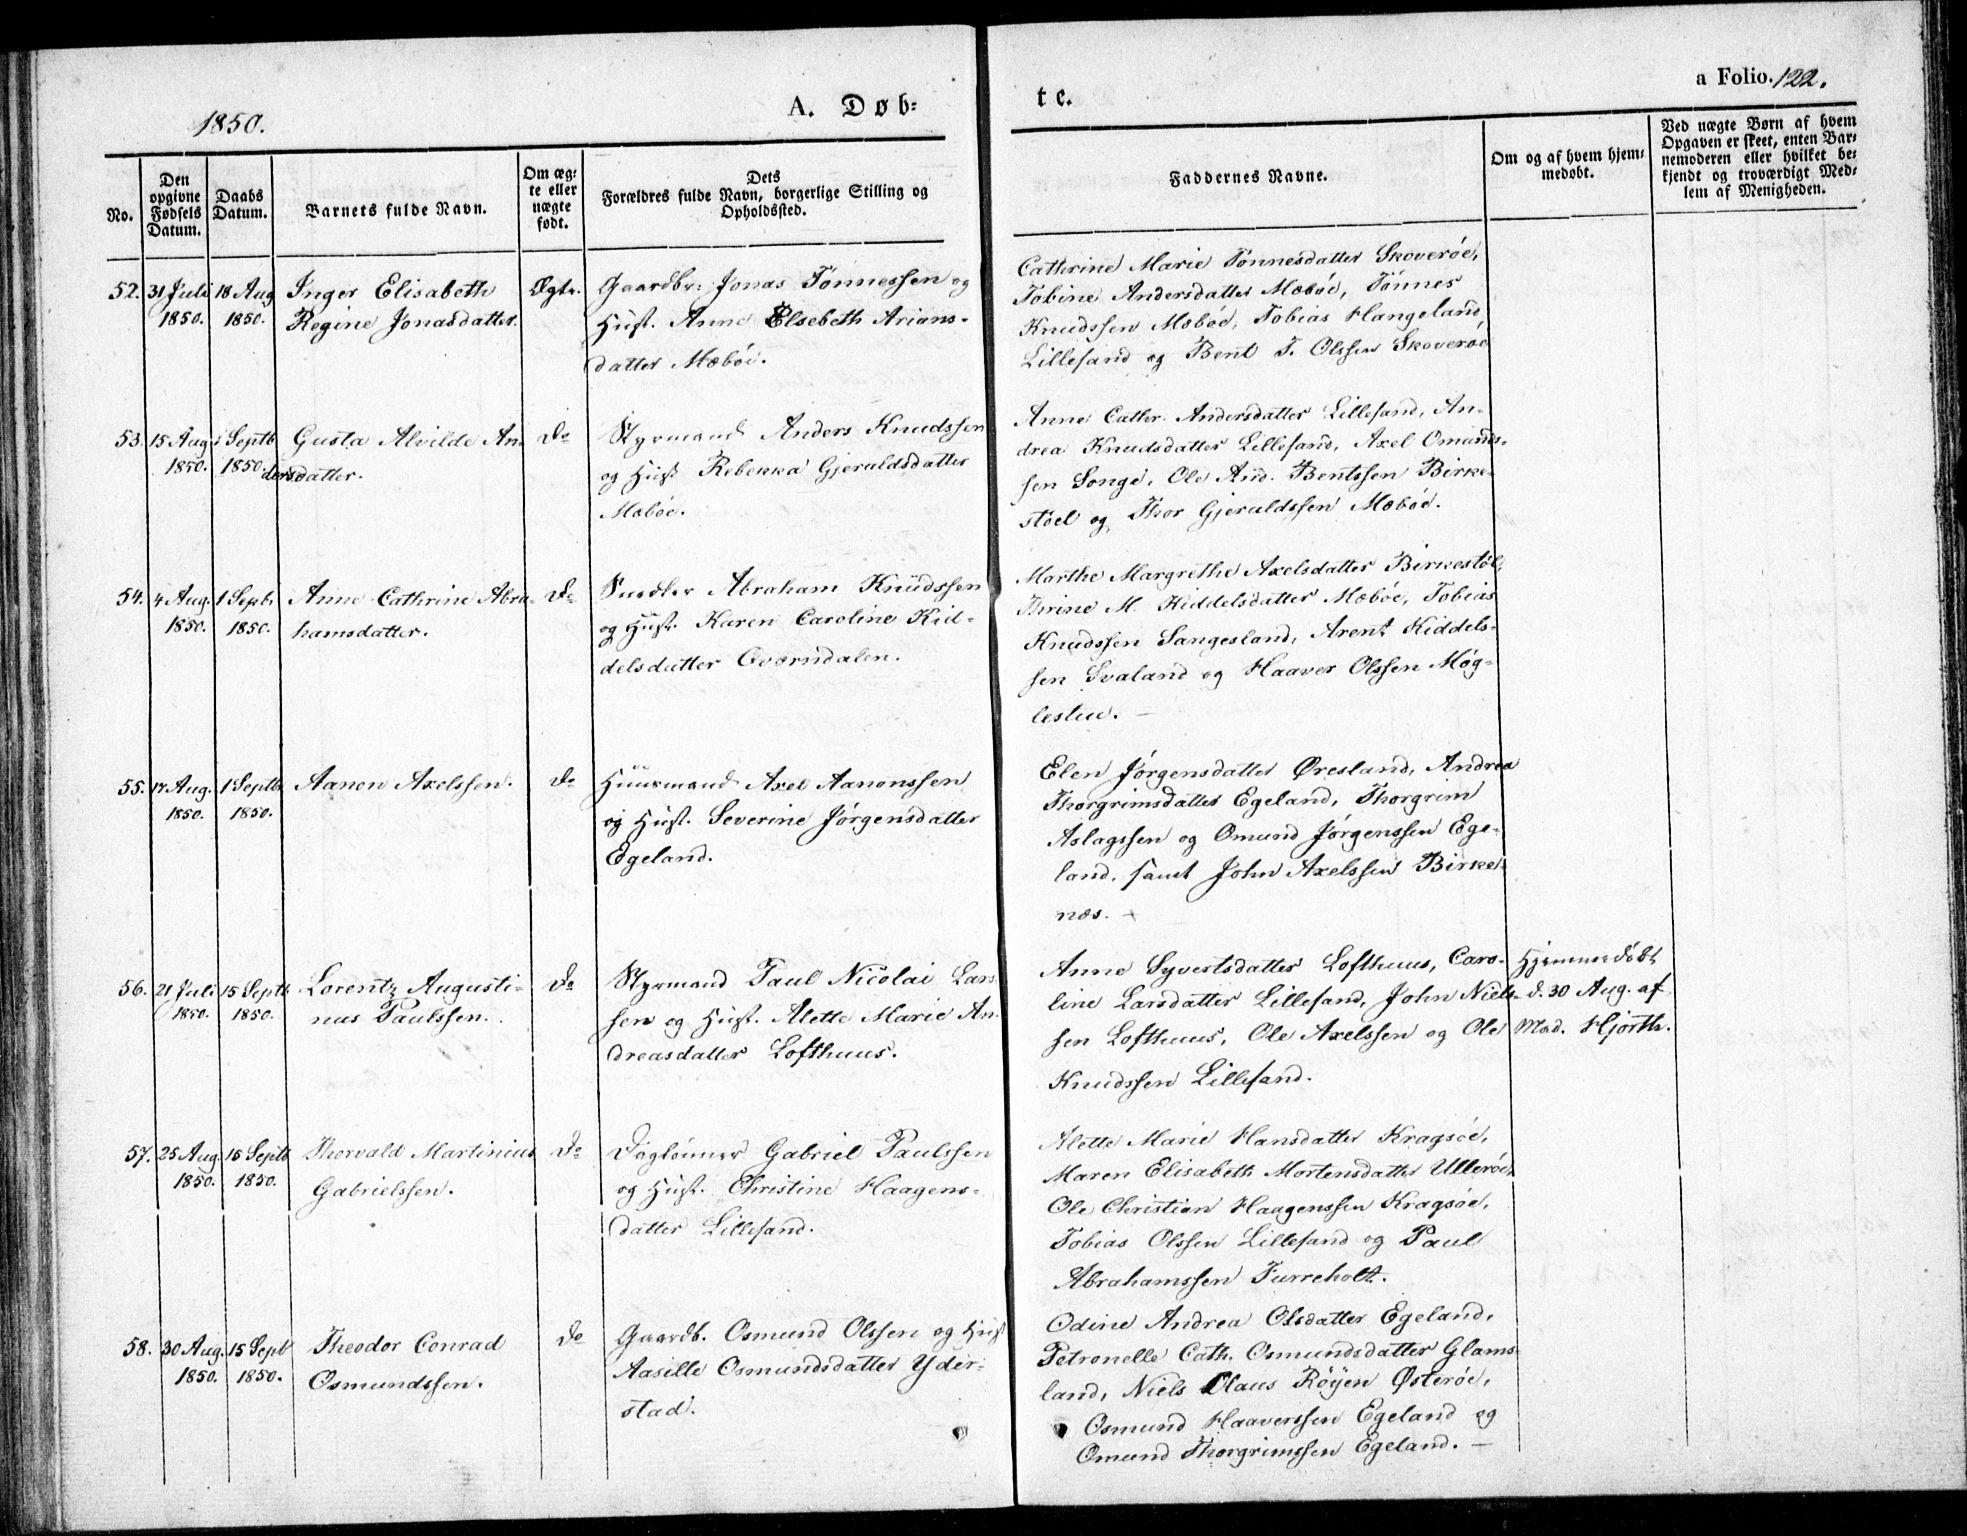 1850.
A. Døb-
te.
a Folio. 122.
No.
Den opgivne Fødsels Datum.
Daabs Datum.
Barnets fulde Navn.
Om æg-
te eller
nægte
født.
Dets
Forældres fulde Navn, borgerlige Stilling og
Opholdssted.
Faddernes Navne.
Om og af hvem hjem-
medøbt.
Ved nægte Børn af hvem
Opgaven er skeet, enten Bar-
nemoderen eller hvilket be-
kjendt og troværdigt Med-
lem af Menigheden.
52.
31 Juli
1850.
18 Aug
1850.
Inger Elisabeth
Regine Jonasdatter.
Ægte.
Gaardbr. Jonas Tønnessen og
Hust. Anne Elsebeth Arians-
datter Mæbøe.
Cathrine Marie Tønnesdatter Skoverøe,
Tobine Andersdatter Mæbøe, Tönnes
Knudssen Mæbøe, Tobias Hangeland
Lillesand og Bent T. Olssen Skoverøe
53.
15 Aug
1850.
1 Septb
1850.
Gusta Alvilde An-
dersdatter.
Do
Styrmand Anders Knudssen
og Hust Rebekka Gjeruldsdatter
Mæbøe.
Anne Cathr. Andersdatter Lillesand, An-
drea Knudsdatter Lillesand, Axel Omunds-
sen Songe, Ole And. Bentssen Birke-
støel og Thor Gjeruldssen Mæbøe.
54.
4 Aug.
1850.
1 Septb.
1850.
Anne Cathrine Abra-
hamsdatter.
Do
Snedker Abraham Knudssen
og Hust. Karen Caroline Kid-
delsdatter Qværndalen.
Marthe Margrethe Axelsdatter Birkestøl,
Thrine M. Kiddelsdatter Mæbøe, Tobias
Knudssen Sangesland, Arent Kiddels-
sen Svaland og Haaver Olssen Møg-
lestue. —
55.
17 Aug.
1850.
1 Septb
1850.
Aanon Axelssen.
Do
Huusmand Axel Aanonssen
og Hust. Severine Jørgensdatter
Egeland.
Elen Jørgensdatter Øresland, Andrea
Thorgrimsdatter Egeland, Thorgrim
Aslagssen og Omund Jørgenssen Ege-
land, samt John Axelssen Birke-
næs. —
56.
21 Juli
1850.
15 Septb
1850.
Lorentz Augusti-
nus Paulssen.
Do
Styrmand Paul Nicolai Lars-
sen og Hust. Alette Marie An-
dreasdatter Lofthuus.
Anne Syvertsdatter Lofthuus, Caro-
line Larsdatter Lillesand, John Niels-
sen Lofthuus, Ole Axelssen og Ole
Knudssen Lillesand.
Hjemmedøbt
d. 30 Aug. af
Mad. Hjorth.
57.
25 Aug.
1850.
15 Septb
1850.
Thorvald Martinius
Gabrielssen.
Do
Dagløinner Gabriel Paulssen
og Hust. Christine Haagens-
datter Lillesand.
Alette Marie Hansdatter Kragsøe,
Maren Elisabeth Mortensdatter Ullerøe,
Ole Christian Haagenssen Kragsøe,
Tobias Olssen Lillesand og Paul
Abrahamssen Furreholt.
58.
30 Aug.
1850.
15 Septb
1850.
Theodor Conrad
Osmundssen.
Do
Gaardb. Osmund Olssen og Hust
Aasille Osmundsdatter Yder-
stad.
Odine Andrea Olsdatter Egeland,
Petronelle Cath. Osmundsdatter Glams-
land, Niels Claus Röyen Østerøe,
Osmund Haaverssen Egeland og
Omund Thorgrimssen Egeland. —